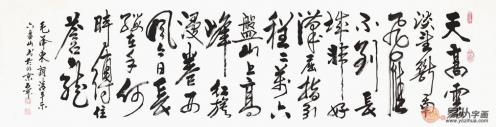 天高雲
淡望斷南
飛雁
不到長
城非好
漢屈指行
程二萬六
盤山上高
峰紅旗
漫卷西
風今日長
纓在手何
時縛住
蒼龍
毛澤東詞清平樂
六盤山 於北京
字画